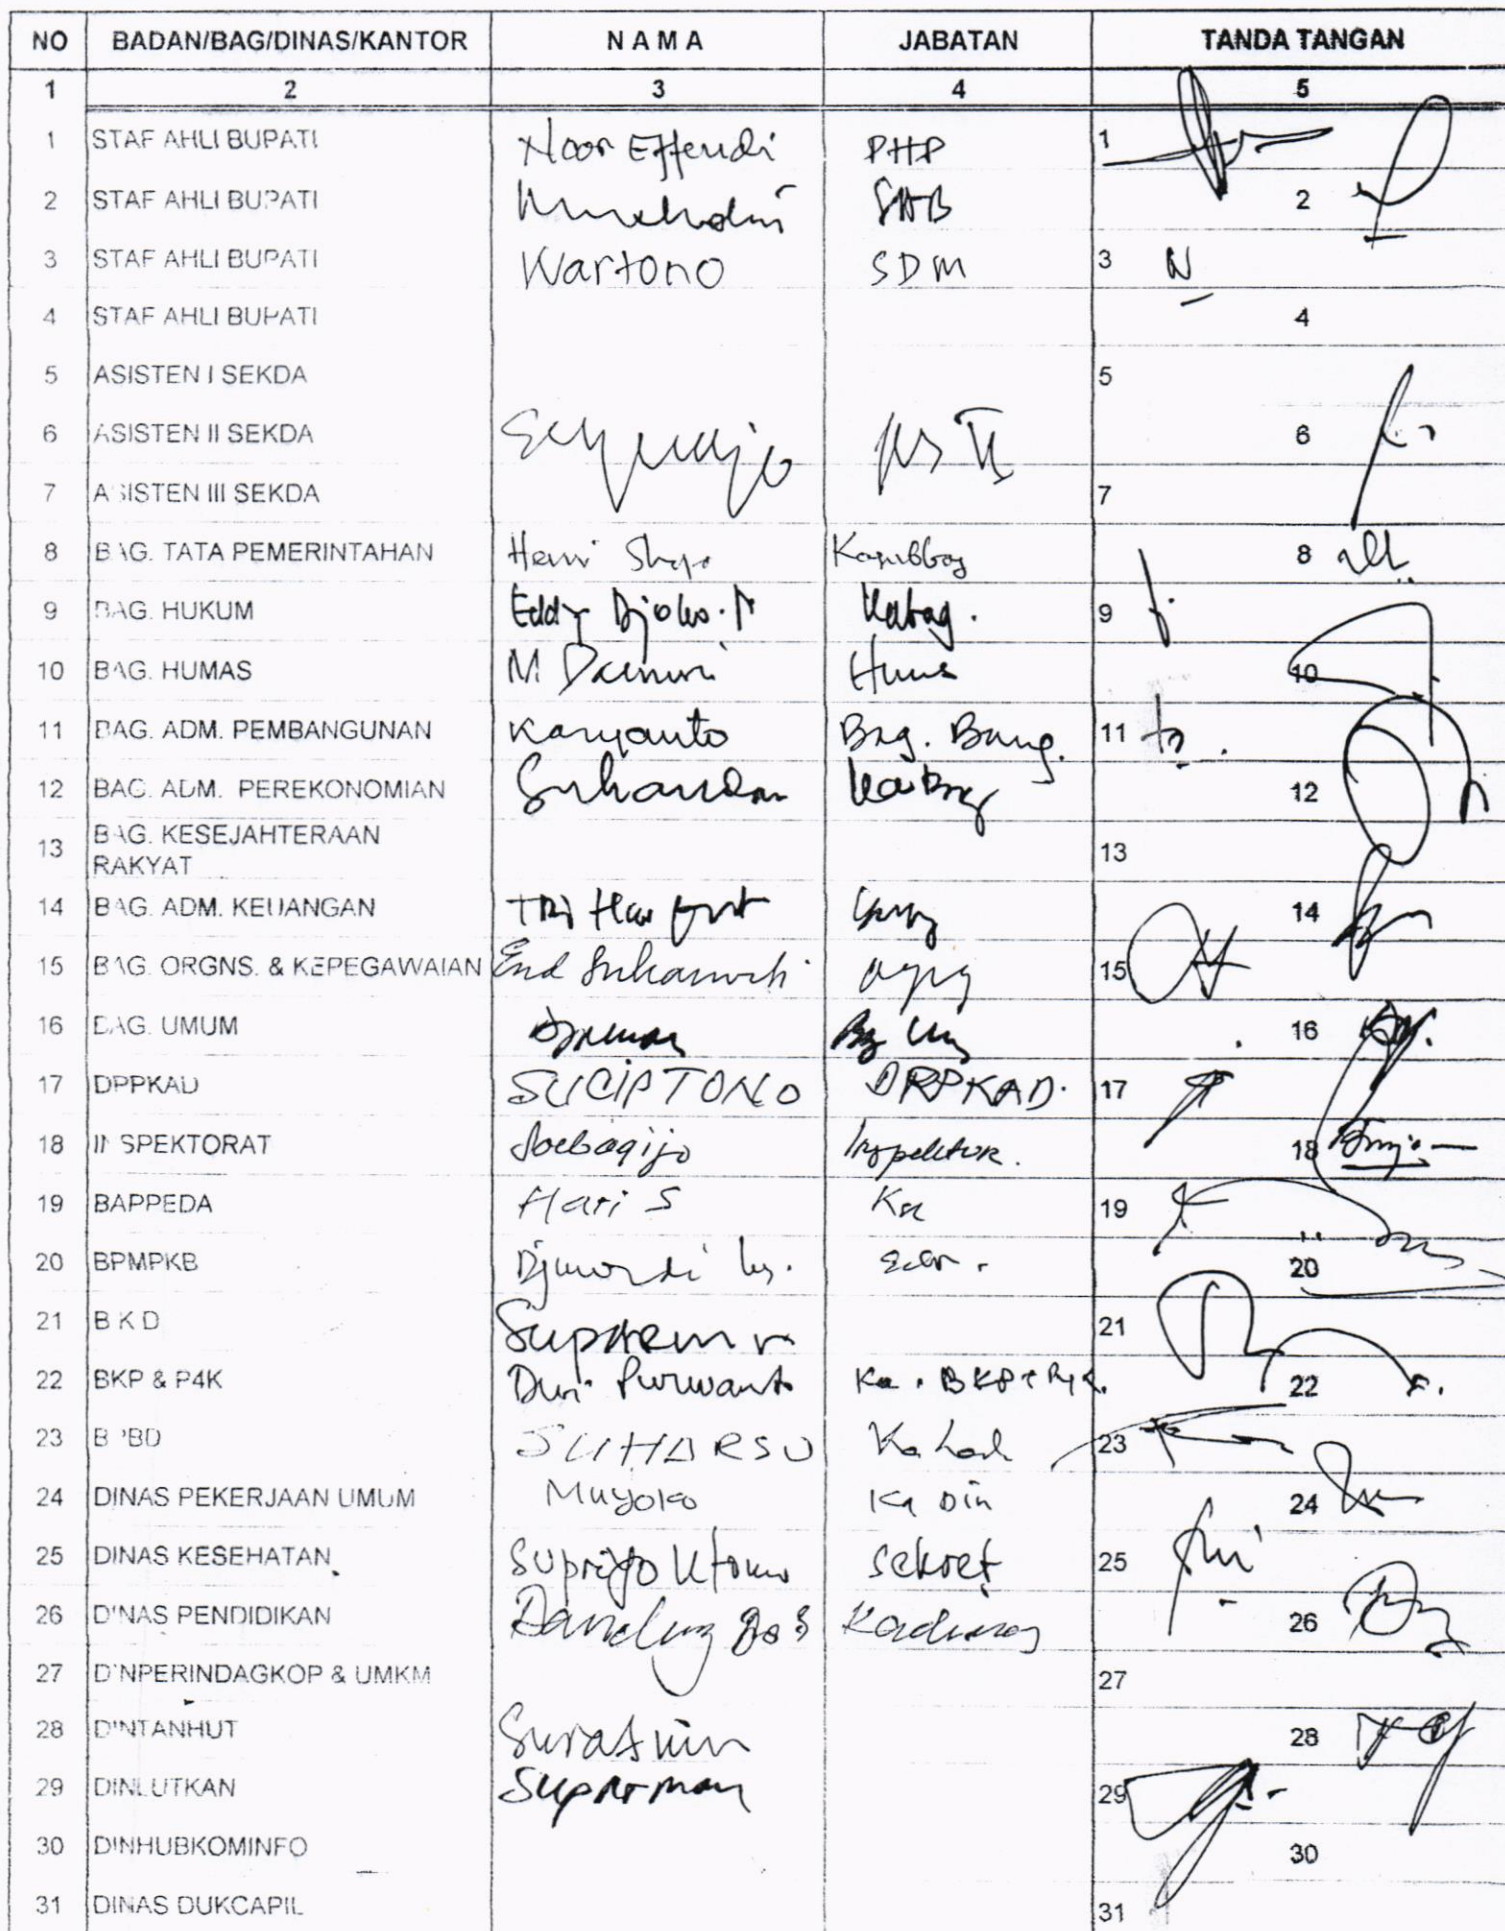 NO BADAN/BAG/DINAS/KANTOR N A M A JABATAN TANDA TANGAN
1 2 3 4 5
1 STAF AHLI BUPATI Noor Effendi PHP 1
2 STAF AHLI BUPATI SAB 2
3 STAF AHLI BUPATI Wartono SDM 3
4 STAF AHLI BUPATI 4
5 ASISTEN I SEKDA 5
6 ASISTEN II SEKDA As II 6
7 ASISTEN III SEKDA 7
8 BAG. TATA PEMERINTAHAN Heri Kasubbag 8
9 BAG. HUKUM Eddy Djoko. Kabag. 9
10 BAG. HUMAS M. Humas 10
11 BAG. ADM. PEMBANGUNAN Karyanto Bag. Bang. 11
12 BAG. ADM. PEREKONOMIAN Kabag 12
13 BAG. KESEJAHTERAAN
RAKYAT 13
14 BAG. ADM. KEUANGAN Tri 14
15 BAG. ORGNS. & KEPEGAWAIAN End 15
16 BAG. UMUM 16
17 DPPKAD SUCIPTONO DPPKAD. 17
18 INSPEKTORAT Soebagijo Inspektur. 18
19 BAPPEDA Hari S Ka 19
20 BPMPKB 20
21 B K D 21
22 BKP & P4K Dwi Purwanto Ka. BKP & P4K. 22
23 BPBD SUHARSO 23
24 DINAS PEKERJAAN UMUM Muyoko Ka Din 24
25 DINAS KESEHATAN Supriyo Utomo Sekret 25
26 DINAS PENDIDIKAN 26
27 DINPERINDAGKOP & UMKM 27
28 DINTANHUT 28
29 DINLUTKAN Suparman 29
30 DINHUBKOMINFO 30
31 DINAS DUKCAPIL 31